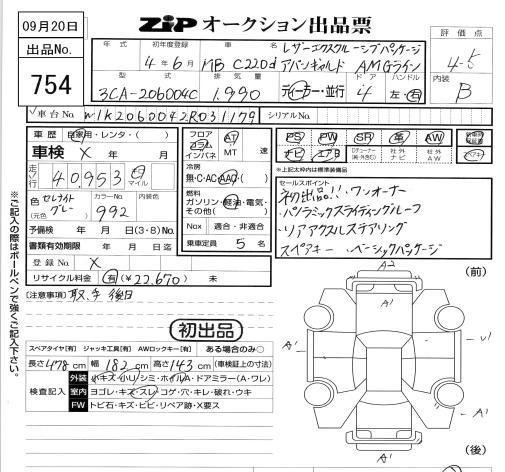 09月20日
ZIP オークション出品票
出品No.
754
年式 初年度登録 車名
4年6月 MB C220d レザーエクスクルーシブパッケージ
アバンギャルド AMGライン
型式 排気量 ドア ハンドル
3CA-206004C 1.990 ディーラー・並行 4 左・右
評価点
4.5
内装
B
車台No. W1K2060042R031179 シリアルNo.
車歴 自家用・レンタ・( )
車検 X 年 月
走行 40,953 キロ マイル
色 セレナイトグレー
(元色)
カラーNo. 992
内装色
予備検 年 月 日(3・8)No.
書類有効期限 年 月 日迄
登録No. X
リサイクル料金 有(¥22,670) 未
[注意事項] 取、手 後日
フロア
コラム
インパネ
AT
MT 速
冷房
無・C・AC・AAC・( )
燃料
ガソリン・軽油・電気・
その他( )
Nox 適合・非適合
乗車定員 5 名
PS PW SR 革 AW
ナビ エアB
※上記太枠内は標準装備品
セールスポイント
初出品!! ・ワンオーナー
・パノラミックスライディングルーフ
・リアアクスルステアリング
スペアキー ・ベーシックパッケージ
※ご記入の際はボールペンで強くご記入下さい。
初出品
スペアタイヤ[有] ジャッキ工具[有] AWロックキー[有] ある場合のみ○
長さ 478 cm 幅 182 cm 高さ 143 cm (車検証上の寸法)
検査記入
外装 小キズ・小U・シミ・ホイルA・ドアミラー(A・ワレ)
室内 ヨゴレ・キズ・スレ・コゲ・穴・キレ・破れ・ウキ
FW トビ石・キズ・ヒビ・リペア跡・X要ス
(前)
A2
A'
A'
U'
A'
A'
A'
(後)